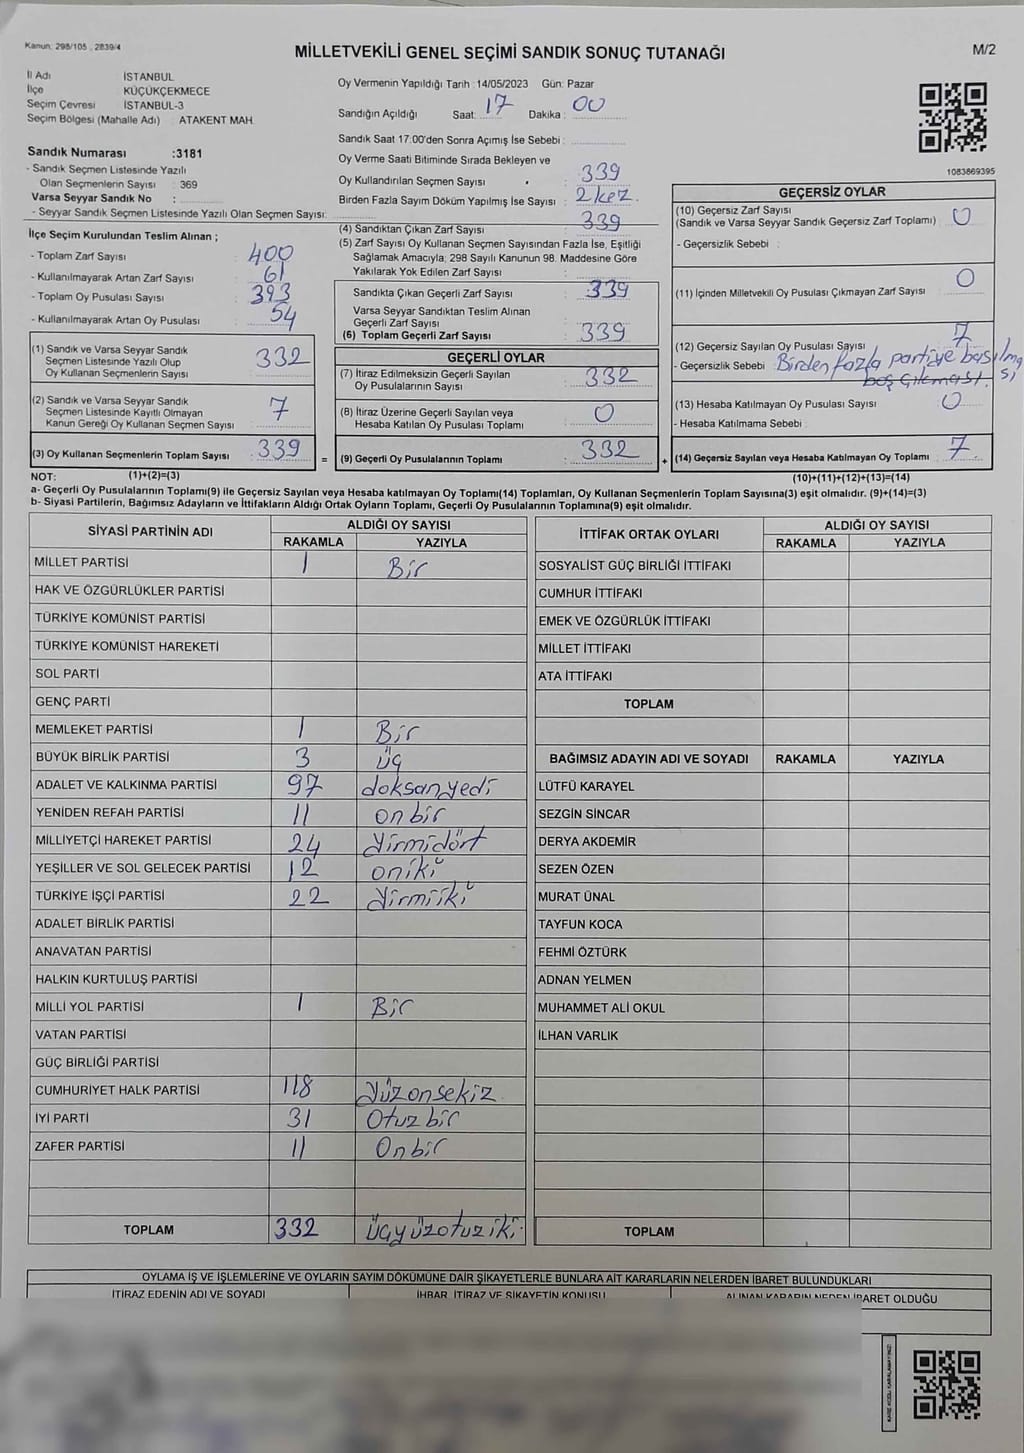 Kanun: 298/105 , 2839/4
MİLLETVEKİLİ GENEL SEÇİMİ SANDIK SONUÇ TUTANAĞI
M/2
İl Adı İSTANBUL
İlçe KÜÇÜKÇEKMECE
Seçim Çevresi İSTANBUL-3
Seçim Bölgesi (Mahalle Adı) : ATAKENT MAH.
Sandık Numarası :3181
- Sandık Seçmen Listesinde Yazılı
Olan Seçmenlerin Sayısı : 369
Varsa Seyyar Sandık No :
- Seyyar Sandık Seçmen Listesinde Yazılı Olan Seçmen Sayısı:
İlçe Seçim Kurulundan Teslim Alınan ;
- Toplam Zarf Sayısı : 400
- Kullanılmayarak Artan Zarf Sayısı : 61
- Toplam Oy Pusulası Sayısı : 393
- Kullanılmayarak Artan Oy Pusulası : 54
(1) Sandık ve Varsa Seyyar Sandık
Seçmen Listesinde Yazılı Olup
Oy Kullanan Seçmenlerin Sayısı : 332
(2) Sandık ve Varsa Seyyar Sandık
Seçmen Listesinde Kayıtlı Olmayan
Kanun Gereği Oy Kullanan Seçmen Sayısı : 7
(3) Oy Kullanan Seçmenlerin Toplam Sayısı : 339
Oy Vermenin Yapıldığı Tarih : 14/05/2023 Gün: Pazar
Sandığın Açıldığı Saat: 17 Dakika : 00
Sandık Saat 17:00'den Sonra Açımış İse Sebebi :
Oy Verme Saati Bitiminde Sırada Bekleyen ve
Oy Kullandırılan Seçmen Sayısı : 339
Birden Fazla Sayım Döküm Yapılmış İse Sayısı : 2 kez.
(4) Sandıktan Çıkan Zarf Sayısı : 339
(5) Zarf Sayısı Oy Kullanan Seçmen Sayısından Fazla İse, Eşitliği
Sağlamak Amacıyla; 298 Sayılı Kanunun 98. Maddesine Göre
Yakılarak Yok Edilen Zarf Sayısı :
Sandıkta Çıkan Geçerli Zarf Sayısı : 339
Varsa Seyyar Sandıktan Teslim Alınan
Geçerli Zarf Sayısı :
(6) Toplam Geçerli Zarf Sayısı : 339
GEÇERLİ OYLAR
(7) İtiraz Edilmeksizin Geçerli Sayılan
Oy Pusulalarının Sayısı : 332
(8) İtiraz Üzerine Geçerli Sayılan veya
Hesaba Katılan Oy Pusulası Toplamı : 0
= (9) Geçerli Oy Pusulalarının Toplamı : 332
1083869395
GEÇERSİZ OYLAR
(10) Geçersiz Zarf Sayısı
(Sandık ve Varsa Seyyar Sandık Geçersiz Zarf Toplamı) : 0
- Geçersizlik Sebebi :
(11) İçinden Milletvekili Oy Pusulası Çıkmayan Zarf Sayısı : 0
(12) Geçersiz Sayılan Oy Pusulası Sayısı : 7
- Geçersizlik Sebebi : Birden fazla partiye basılma
sı
boş çıkması.
(13) Hesaba Katılmayan Oy Pusulası Sayısı : 0
- Hesaba Katılmama Sebebi :
+ (14) Geçersiz Sayılan veya Hesaba Katılmayan Oy Toplamı : 7
NOT: (1)+(2)=(3) (10)+(11)+(12)+(13)=(14)
a- Geçerli Oy Pusulalarının Toplamı(9) ile Geçersiz Sayılan veya Hesaba katılmayan Oy Toplamı(14) Toplamları, Oy Kullanan Seçmenlerin Toplam Sayısına(3) eşit olmalıdır. (9)+(14)=(3)
b- Siyasi Partilerin, Bağımsız Adayların ve İttifakların Aldığı Ortak Oyların Toplamı, Geçerli Oy Pusulalarının Toplamına(9) eşit olmalıdır.
SİYASİ PARTİNİN ADI ALDIĞI OY SAYISI
RAKAMLA YAZIYLA
MİLLET PARTİSİ 1 Bir
HAK VE ÖZGÜRLÜKLER PARTİSİ
TÜRKİYE KOMÜNİST PARTİSİ
TÜRKİYE KOMÜNİST HAREKETİ
SOL PARTİ
GENÇ PARTİ
MEMLEKET PARTİSİ 1 Bir
BÜYÜK BİRLİK PARTİSİ 3 üç
ADALET VE KALKINMA PARTİSİ 97 doksanyedi
YENİDEN REFAH PARTİSİ 11 onbir
MİLLİYETÇİ HAREKET PARTİSİ 24 Yirmidört
YEŞİLLER VE SOL GELECEK PARTİSİ 12 oniki
TÜRKİYE İŞÇİ PARTİSİ 22 Yirmiiki
ADALET BİRLİK PARTİSİ
ANAVATAN PARTİSİ
HALKIN KURTULUŞ PARTİSİ
MİLLİ YOL PARTİSİ 1 Bir
VATAN PARTİSİ
GÜÇ BİRLİĞİ PARTİSİ
CUMHURİYET HALK PARTİSİ 118 Yüzonsekiz
İYİ PARTİ 31 Otuzbir
ZAFER PARTİSİ 11 Onbir
TOPLAM 332 üçyüzotuziki
İTTİFAK ORTAK OYLARI ALDIĞI OY SAYISI
RAKAMLA YAZIYLA
SOSYALİST GÜÇ BİRLİĞİ İTTİFAKI
CUMHUR İTTİFAKI
EMEK VE ÖZGÜRLÜK İTTİFAKI
MİLLET İTTİFAKI
ATA İTTİFAKI
TOPLAM
BAĞIMSIZ ADAYIN ADI VE SOYADI RAKAMLA YAZIYLA
LÜTFÜ KARAYEL
SEZGİN SİNCAR
DERYA AKDEMİR
SEZEN ÖZEN
MURAT ÜNAL
TAYFUN KOCA
FEHMİ ÖZTÜRK
ADNAN YELMEN
MUHAMMET ALİ OKUL
İLHAN VARLIK
TOPLAM
OYLAMA İŞ VE İŞLEMLERİNE VE OYLARIN SAYIM DÖKÜMÜNE DAİR ŞİKAYETLERLE BUNLARA AİT KARARLARIN NELERDEN İBARET BULUNDUKLARI
İTİRAZ EDENİN ADI VE SOYADI İHBAR, İTİRAZ VE ŞİKAYETİN KONUSU ALINAN KARARIN NEDEN İBARET OLDUĞU